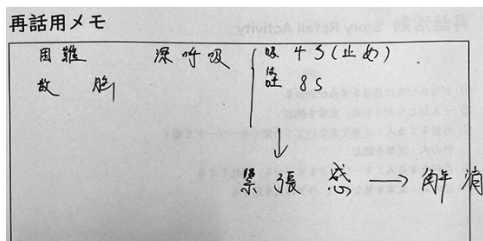 再話用メモ
難 深呼吸 吸 4S(止め)
故 吐 8S
↓
緊張感 → 解消